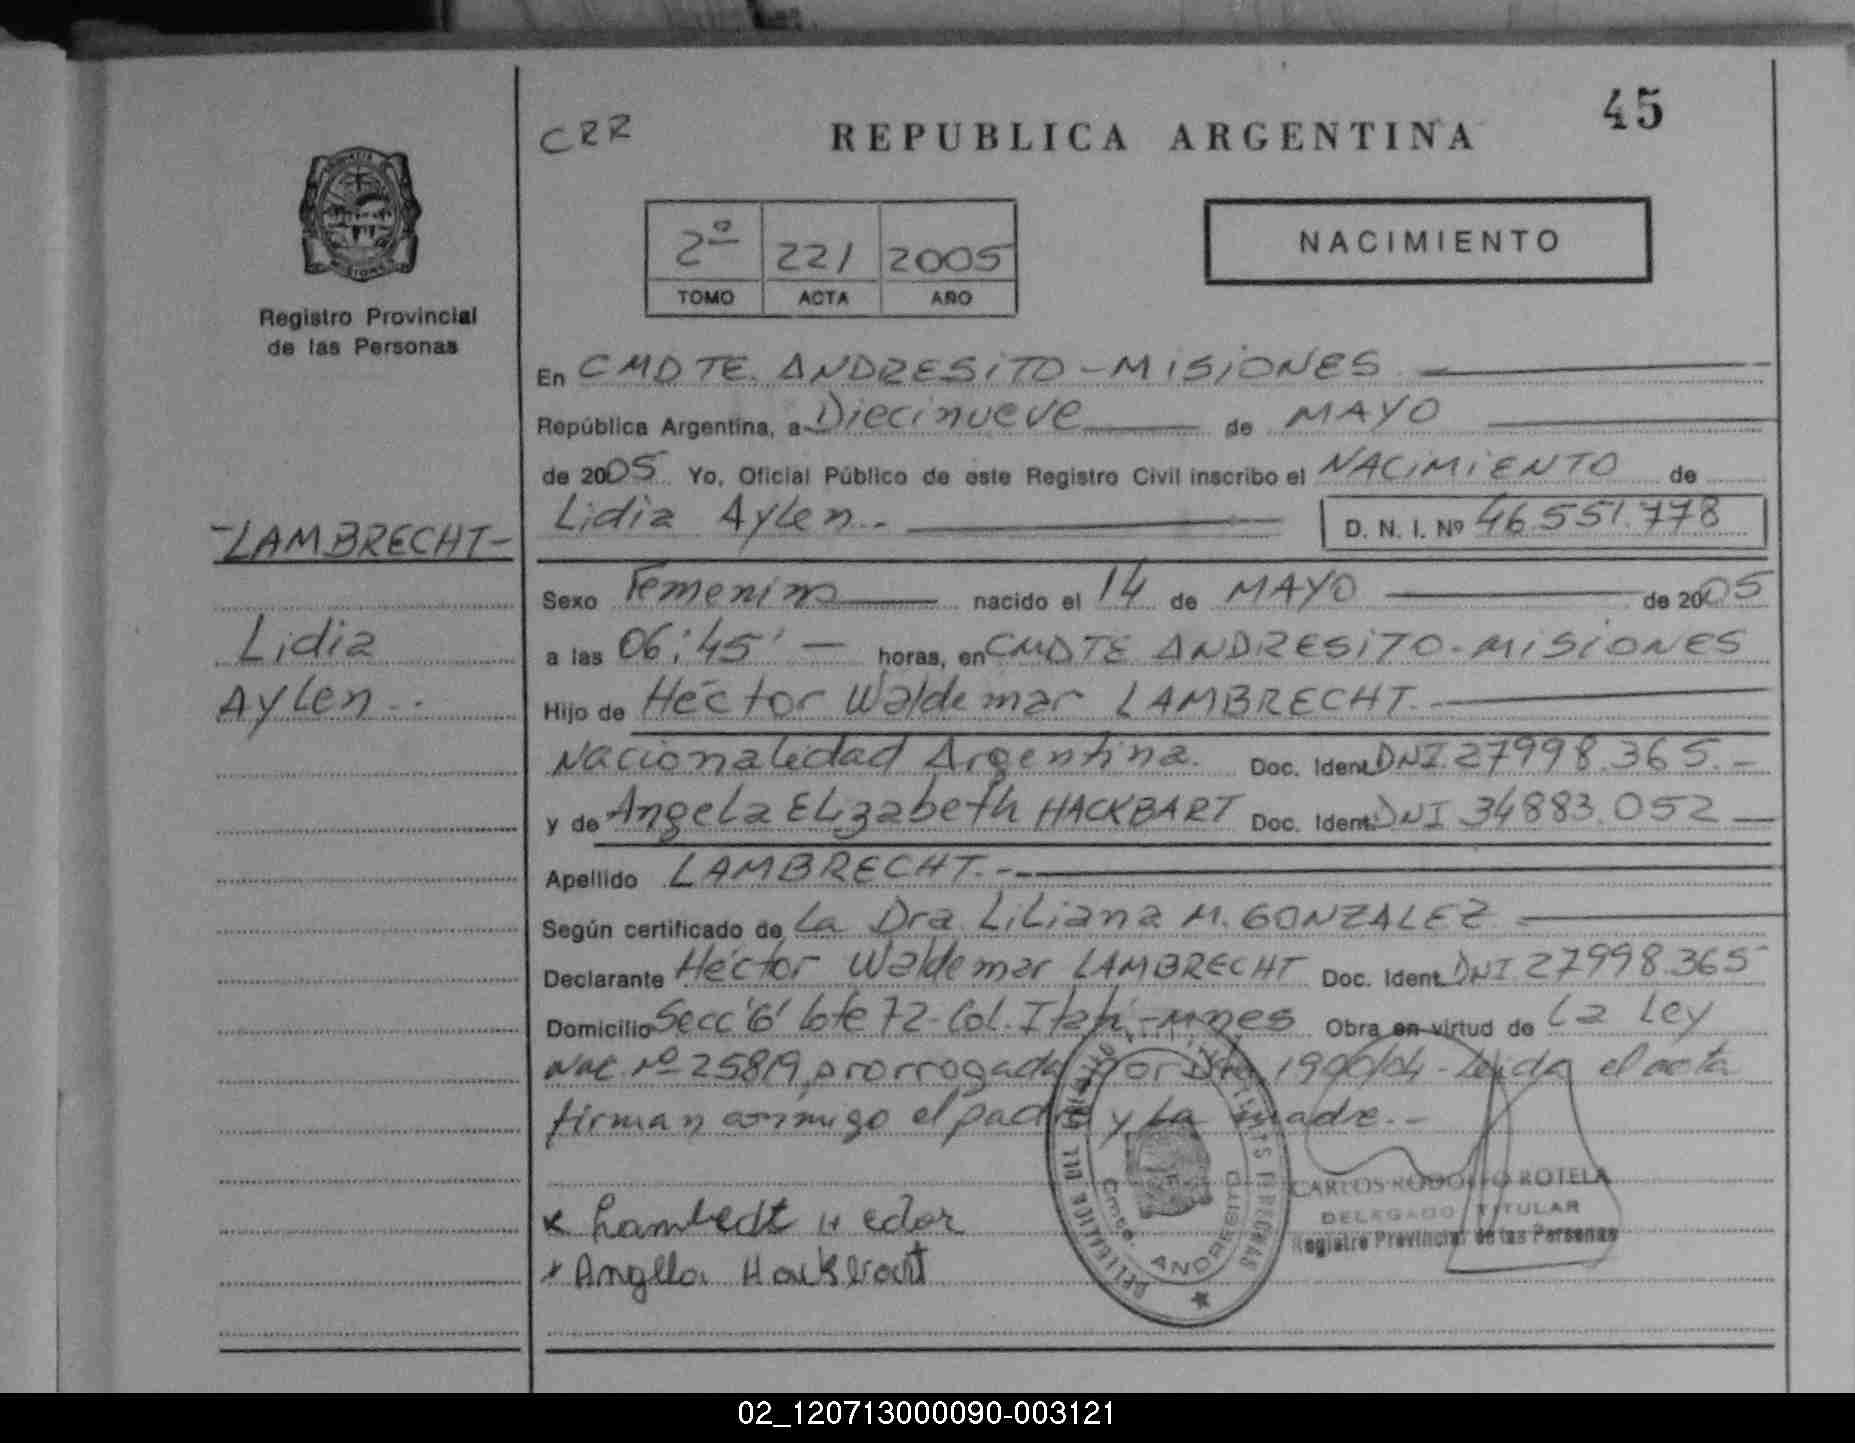 45
CRR
REPUBLICA ARGENTINA
2º 221 2005
TOMO ACTA AÑO
NACIMIENTO
Registro Provincial
de las Personas
En CMDTE. ANDRESITO - MISIONES
República Argentina, a Diecinueve de MAYO
de 2005 Yo, Oficial Público de este Registro Civil inscribo el NACIMIENTO de
Lidia Aylen.- D. N. I. Nº 46.551.778
-LAMBRECHT-
Lidia
Aylen..
Sexo Femenino nacido el 14 de MAYO de 2005
a las 06:45' horas, en CMDTE ANDRESITO - MISIONES
Hijo de Héctor Waldemar LAMBRECHT.
Nacionalidad Argentina. Doc. Ident. DNI 27998.365.-
y de Angela Elizabeth HACKBART Doc. Ident. DNI 34883.052
Apellido LAMBRECHT.-
Según certificado de La Dra. Liliana M. GONZALEZ
Declarante Héctor Waldemar LAMBRECHT Doc. Ident. DNI 27998.365
Domicilio Secc '6' lote 72 - Col. Itatí - Mnes Obra en virtud de La Ley
Nac. Nº 25819 prorrogada por Dto. 1900/04 - Leida el acta
firman conmigo el padre y La madre.-
x Lambedt H edor
x Anglla Hackbart
Cmdte. ANDRESITO
CARLOS RODOLFO ROTELA
DELEGADO TITULAR
Registro Provincial de las Personas
02_120713000090-003121